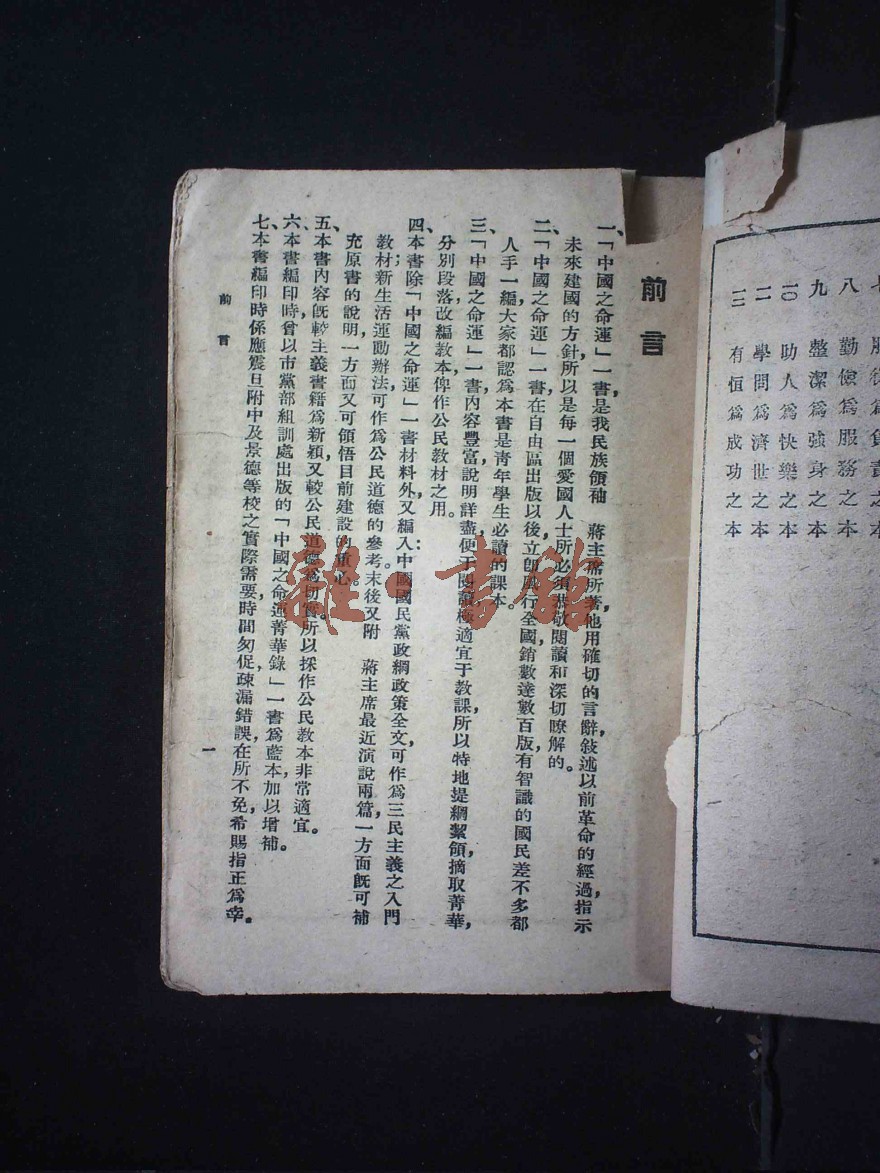 七
八 勤儉爲服務之本
九 整潔爲強身之本
一〇 助人爲快樂之本
一一 學問爲濟世之本
一二 有恒爲成功之本
前言
一、「中國之命運」一書是我民族領袖 蔣主席所著，他用確切的言辭敍述以前革命的經過，指示
未來建國的方針，所以是每一個愛國人士所必須恭敬閱讀和深切瞭解的。
二、「中國之命運」一書，在自由區出版以後，立卽風行全國，銷數達數百版，有智識的國民差不多都
人手一編，大家都認爲本書是靑年學生必讀的課本。
三、「中國之命運」一書，內容豐富，說明詳盡，便于閱讀，極適宜于教課，所以特地提綱絜領，摘取菁華，
分別段落，改編教本，俾作公民教材之用。
四、本書除「中國之命運」一書材料外，又編入：中國國民黨政綱政策全文，可作爲三民主義之入門
教材；新生活運動辦法可作爲公民道德的參考。末後又附 蔣主席最近演說兩篇，一方面旣可補
充原書的說明，一方面又可領悟目前建設的重心。
五、本書內容旣較主義書籍爲新穎，又較公民道德爲切實，所以採作公民教本，非常適宜。
六、本書編印時曾以市黨部組訓處出版的「中國之命運菁華錄」一書爲藍本，加以增補。
七、本書編印時係應震旦附中及景德等校之實際需要，時間匆促，疎漏錯誤，在所不免，希賜指正爲幸。
前言
一
雜·書館